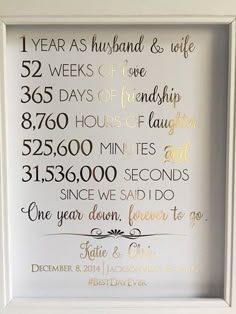 1 YEAR AS husband & wife
52 WEEKS OF love
365 DAYS OF friendship
8,760 HOURS OF laughter
525,600 MINUTES and
31,536,000 SECONDS
SINCE WE SAID I DO
One year down, forever to go.
Katie & Chris
DECEMBER 8, 2014 | JACKSONVILLE
#BESTDAYEVER